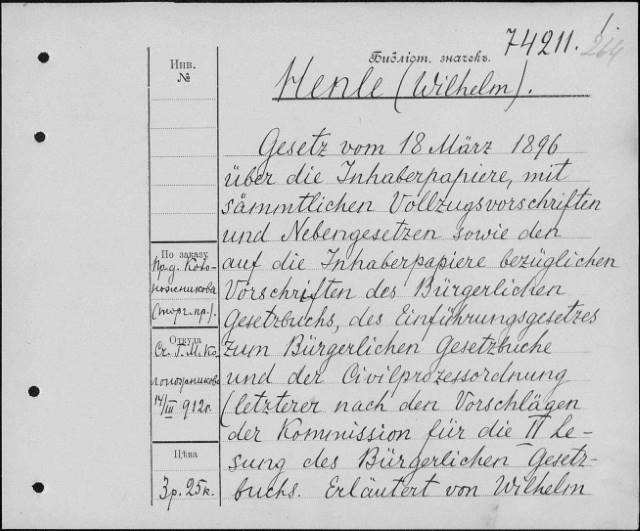 74211.
264
Библіот. значекъ.
Henle (Wilhelm).
Инв.
№
Gesetz vom 18 März 1896
über die Inhaberpapiere, mit
sämmtlichen Vollzugsvorschriften
und Nebengesetzen sowie den
auf die Inhaberpapiere bezüglichen
Vorschriften des Bürgerlichen
Gesetzbuchs, des Einführungsgesetzes
zum Bürgerlichen Gesetzbuche
und der Civilprozessordnung
(letzterer nach den Vorschlägen
der Kommission für die II Le-
sung des Bürgerlichen Gesetz-
buchs. Erläutert von Wilhelm
По заказу
(торг. пр.).
Откуда
14/III 912 г.
Цѣна
3 р. 25 к.